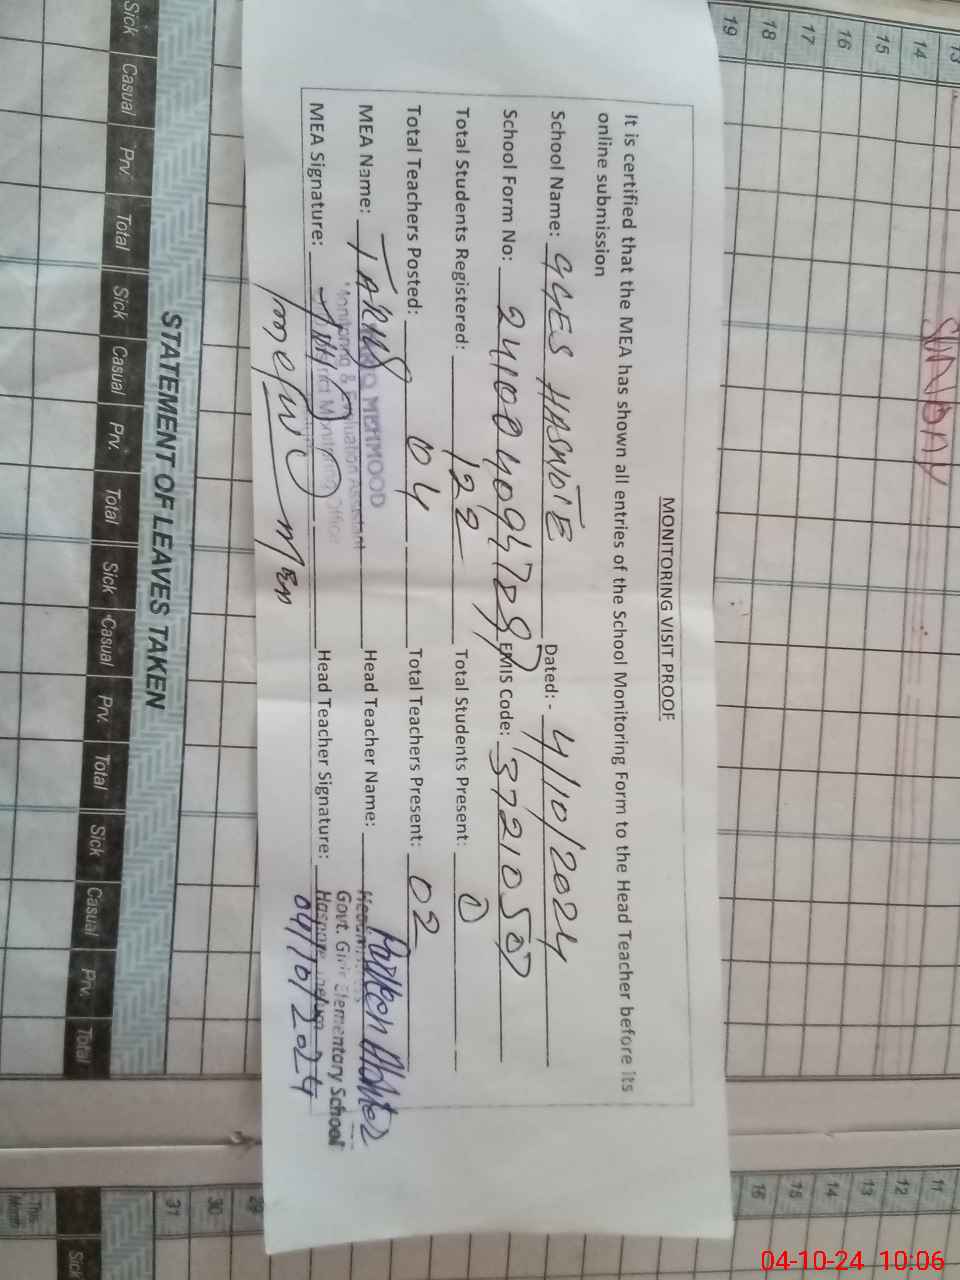 MONITORING VISIT PROOF
It is certified that the MEA has shown all entries of the School Monitoring Form to the Head Teacher before its
online submission
School Name: GGES HASNOTE Dated: - 4/10/2024
School Form No: EMIS Code: 37210507
Total Students Registered: 122 Total Students Present: 0
Total Teachers Posted: 04 Total Teachers Present: 02
MEA Name: TARIQ MEHMOOD Head Teacher Name: Parveen Akhter
Monitoring & Evaluation Assistant
Govt. Girls Elementary School
MEA Signature: Head Teacher Signature:
04/10/2024
MEA
SUNDAY
13
14
15
16
17
18
19
STATEMENT OF LEAVES TAKEN
Sick Casual Prv. Total Sick Casual Prv. Total Sick Casual Prv. Total Sick Casual Prv. Total
11
12
13
14
15
16
29
30
31
This Month
Sick
04-10-24 10:06